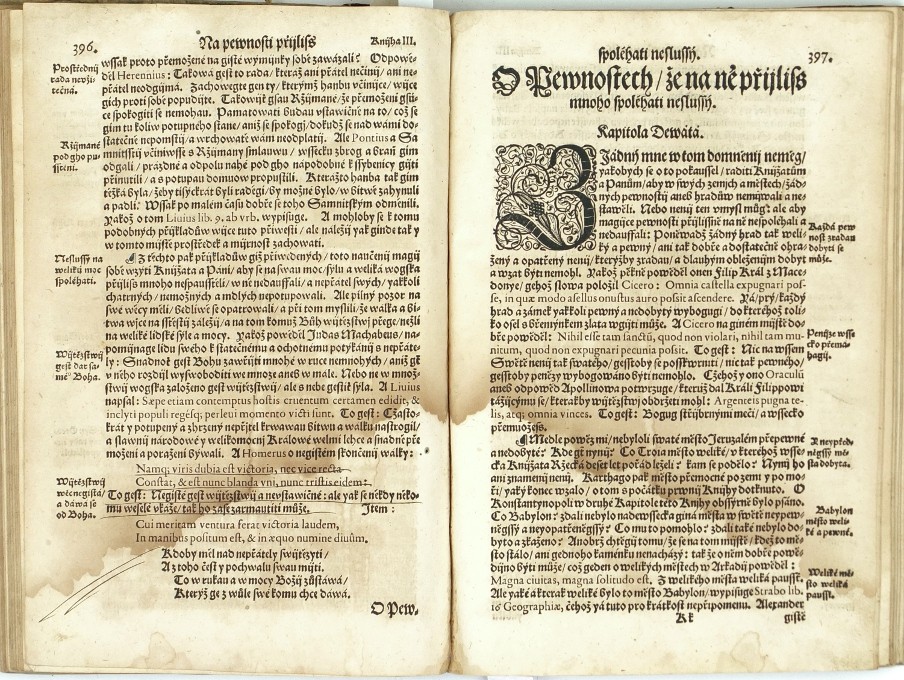 396.
Na pewnosti přijliss
Knijha III.
wssak proto přemožené na gisté wymijnky sobě zawázali? Odpowě-
děl Herennius: Takowá gest to rada/ kteráž ani přátel nečinij/ ani ne-
přátel neodgijmá. Zachowegte gen ty/ kterýmž hanbu včinijce/ wijce
gich proti sobě popudijte. Takowijť gsau Ržijmané/ že přemoženi gsau-
ce spokogiti se nemohau. Pamatowati budau vstawičně na to/ což se
gim tu koliw potupného stane/ aniž se spokogij/ dokudž se nad wámi do-
statečně nepomstij/ a wrchowatě wám neodplatij. Ale Pontius a Sa
mnitsstij včiniwsse s Ržijmany smlauwu/ wssecku zbrog a braň gim
odgali/ prázdné a odpolu nahé pod gho nápodobné k ssybenicy gijti
přinutili/ a s potupau domuow propustili. Kterážto hanba tak gim
těžká byla/ žeby tisýckrát byli raděgi/ by možné bylo/ w bitwě zahynuli
a padli. Wssak po malém času dobře se toho Samnitským odměnili.
Yakož o tom Liuius lib. 9. ab vrb. wypisuge. A mohloby se k tomu
podobných přijkladůw wijce tuto přiwesti/ ale náležij yak ginde tak y
w tomto mijstě prostředek a mijrnost zachowati.
Z těchto pak přijkladůw giž přiwedených/ toto naučenij magij
sobě wzýti Knijžata a Páni/ aby se na swau moc/ sýlu a weliká wogska
přijliss mnoho nespausstěli/ w ně nedaufali/ a nepřátel swých/ yakkoli
chatrných/ nemožných a mdlých nepotupowali. Ale pilný pozor na
swé wěcy měli/ bedliwě se opatrowali/ a při tom myslili/ že walka a bi-
twa wijce na sstěstij záležij/ a na tom komuž Bůh wijtězstwij přege/ nežli
na weliké lidské sýle a mocy. Yakož powěděl Judas Machabeus/ na-
pomijnage lidu swého k statečnému a ochotnému potýkánij s nepřáte-
ly: Snadnoť gest Bohu zawřijti mnohé w ruce nemnohých/ aniž gť
v něho rozdijl wyswoboditi we množe aneb w male. Nebo ne w množ-
stwij wogska založeno gest wijtězstwij/ ale s nebe gestiť sýla. A Liuius
napsal: Sæpe etiam contemptus hostis cruentum certamen edidit, &
inclyti populi regésq; perleui momento victi sunt. To gest: Cžasto-
krát y potupený a zhrzený nepřijtel krwawau bitwu a walku nastrogil/
a slawnij národowé y welikomocnij Králowé welmi lehce a snadně pře
moženi a poraženi býwali. A Homerus o negistém skončenij walky:
Namq; viris dubia est victoria, nec vice recta
Constat, & est nunc blanda vni, nunc tristis eidem:
To gest: Negisté gest wijtězstwij a newstawičné: ale yak se někdy něko-
mu weselé vkáže/ tak ho zase zarmautiti může. Item:
Cui meritam ventura ferat victoria laudem,
In manibus positum est, & in æquo numine diuûm.
Kdoby měl nad nepřátely swijtězyti/
A z toho čest y pochwalu swau mijti.
To w rukau a w mocy Božij zůstáwá/
Kterýž ge z wůle swé komu chce dáwá.
O Pew-
Prostřednij
rada nevži-
tečná.
Ržijmané
pod gho pu-
sstěni.
Neslussý na
weliků moc
spoléhati.
Wijtězstwij
gest dat sa-
mé Boha.
Wijtězstwij
wěc negistá/
a dáwá se
od Boha.
spoléhati neslussý.
397.
O Pewnostech/ že na ně přijliss
mnoho spoléhati neslussý.
Kapitola Dewátá.
Žádný mne w tom domněnij neměg/
yakobych se o to pokaussel/ raditi Knijžatům
a Pánům/ aby w swých zemjch a městech/ žád-
ných pewnostij aneb hradůw neměwali a ne-
stawěli. Nebo nenij ten vmysl můg: ale aby
magijce pewnosti přijlissně na ně nespoléhali a
nedaufali: Poněwadž žádný hrad tak weli-
ký a pewný/ ani tak dobře a dostatečně ohra-
žený a opatřený nenij/ kterýžby zradau/ a dlauhým obleženijm dobyt
a wzat býti nemohl. Yakož pěkně powěděl onen Filip Král z Mace-
donye/ gehož slowa položil Cicero: Omnia castella expugnari pos-
se, in quæ modo asellus onustus auro possit ascendere. Rá/ prý/ každý
hrad a zámek yakkoli pewný a nedobytý wybogugi/ do kterehož toli-
ko osel s břemýnkem zlata wgijti může. A Cicero na giném mijstě do-
bře powěděl: Nihil esse tam sanctũ, quod non violari, nihil tam mu-
nitum, quod non expugnari pecunia possit. To gest: Nic na wssem
Swětě nenij tak swatého/ gessto by se posskwrniti/ nic tak pewného/
gessto by penězy wybogowáno býti nemohlo. Cžehož y ono Oraculũ
aneb odpowěd Apollinowa potwrzuge/ kterijž dal Králi Filippowi
tážijcýmu se/ kterakby wijtězstwij obdržeti mohl: Argenteis pugna te-
lis, atq; omnia vinces. To gest: Bogug střijbrnými meči/ a wssecko
přemůžess.
Medle powěz mi/ nebyloli swaté město Jeruzalém přepewné
a nedobyté? Kde gť nynij? Co Troia město weliké/ w kterehož wsse-
cka Knijžata Ržecká deset let pořád leželi? kam se podělo? Nynij ho
ani znamenij nenij. Karthago pak město přemocné po zemi y po mo-
ři/ yaký konec wzalo/ o tom s počátku prwnij Knijhy dotknuto. O
Konstantynopoli w druhé Kapitole této Knijhy obssýrně bylo psáno.
Co Babylon? zdali nebylo nadewssecka giná města w swětě neypew-
něgssý a neyopatřeněgssý? Co mu to pomohlo? zdali také nebylo do-
byto a zkaženo? Anobrž chtěgij tomu/ že se na tom mijstě/ kdež to mě-
sto stálo/ ani gednoho kaménku nenacházý: tak že o něm dobře powě-
dijno býti může/ což geden o welikých městech w Arkadij powěděl:
Magna ciuitas, magna solitudo est. Z welikého města weliká paussť.
Ale yaké a kterak weliké bylo to město Babylon/ wypisuge Strabo lib.
16 Geographiæ, čehož yá tuto pro krátkost nepřipomenu. Alexander
Kk
gistě
Každá pew
nost zradau
dobyti se
může.
Penijze wsse
cko přemá-
hagij.
Babylon
město weli-
ké a pewné.
Weliké mě-
sto weliká
paussť.